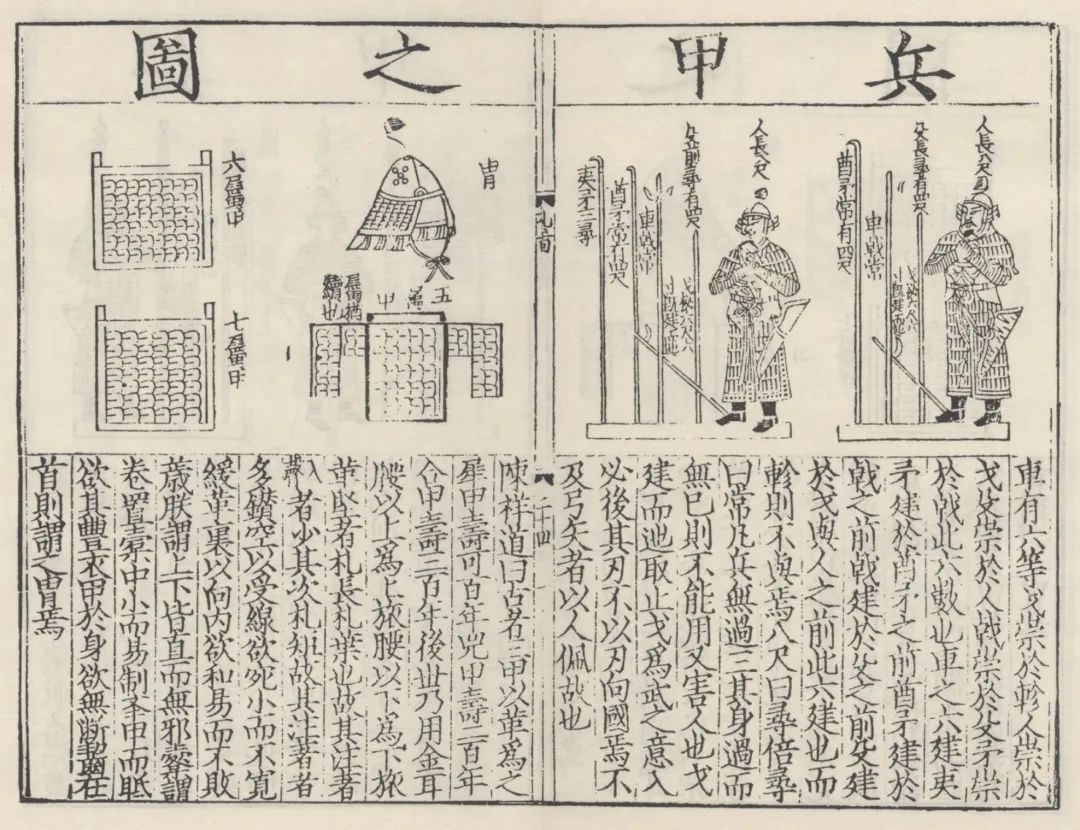 兵甲之圖
人長八尺
殳長尋有四尺
車戟常
酋矛常有四尺
人長八尺
殳長尋有四尺
車戟常
酋矛常有四尺
夷矛三尋
車有六等戈崇於軫人崇於
戈殳崇於人戟崇於殳矛崇
於戟此六數也車之六建夷
矛建於酋矛之前酋矛建於
戟之前戟建於殳之前殳建
於戈與人之前此六建也而
軫則不與焉八尺曰尋倍尋
曰常凡兵無過三其身過而
無已則不能用又害人也戈
建而迤取止戈爲武之意入
必後其刃不以刃向國焉不
及弓矢者以人佩故也
冑
五屬甲
屬猶續也
六屬甲
七屬甲
陳祥道曰古者三甲以革爲之
犀甲壽可百年兕甲壽二百年
合甲壽三百年後世乃用金耳
腰以上爲上旅腰以下爲下旅
革堅者札長札葉也故其注著
者少其次札短故其注著者
多鑚空以受線欲宛小而不寬
緩革裏以向内欲和易而不敗
薉朕謂上下皆直而無邪橐謂
卷置橐中小而易制甲而眡
欲其豐衣甲於身欲無齘齧在
首則謂之冑焉